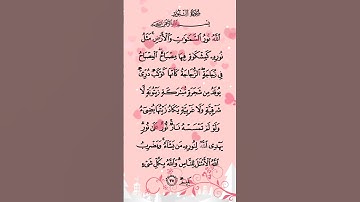 سُورَةُ النُّورِ
بِسْمِ اللَّهِ الرَّحْمَٰنِ الرَّحِيمِ
اللَّهُ نُورُ السَّمَٰوَٰتِ وَالْأَرْضِ مَثَلُ
نُورِهِ كَمِشْكَوٰةٍ فِيهَا مِصْبَاحٌ الْمِصْبَاحُ
فِي زُجَاجَةٍ الزُّجَاجَةُ كَأَنَّهَا كَوْكَبٌ دُرِّيٌّ
يُوقَدُ مِن شَجَرَةٍ مُّبَٰرَكَةٍ زَيْتُونَةٍ لَّا
شَرْقِيَّةٍ وَلَا غَرْبِيَّةٍ يَكَادُ زَيْتُهَا يُضِيءُ
وَلَوْ لَمْ تَمْسَسْهُ نَارٌ نُّورٌ عَلَىٰ نُورٍ
يَهْدِي اللَّهُ لِنُورِهِ مَن يَشَاءُ وَيَضْرِبُ
اللَّهُ الْأَمْثَٰلَ لِلنَّاسِ وَاللَّهُ بِكُلِّ شَيْءٍ
عَلِيمٌ ٣٥